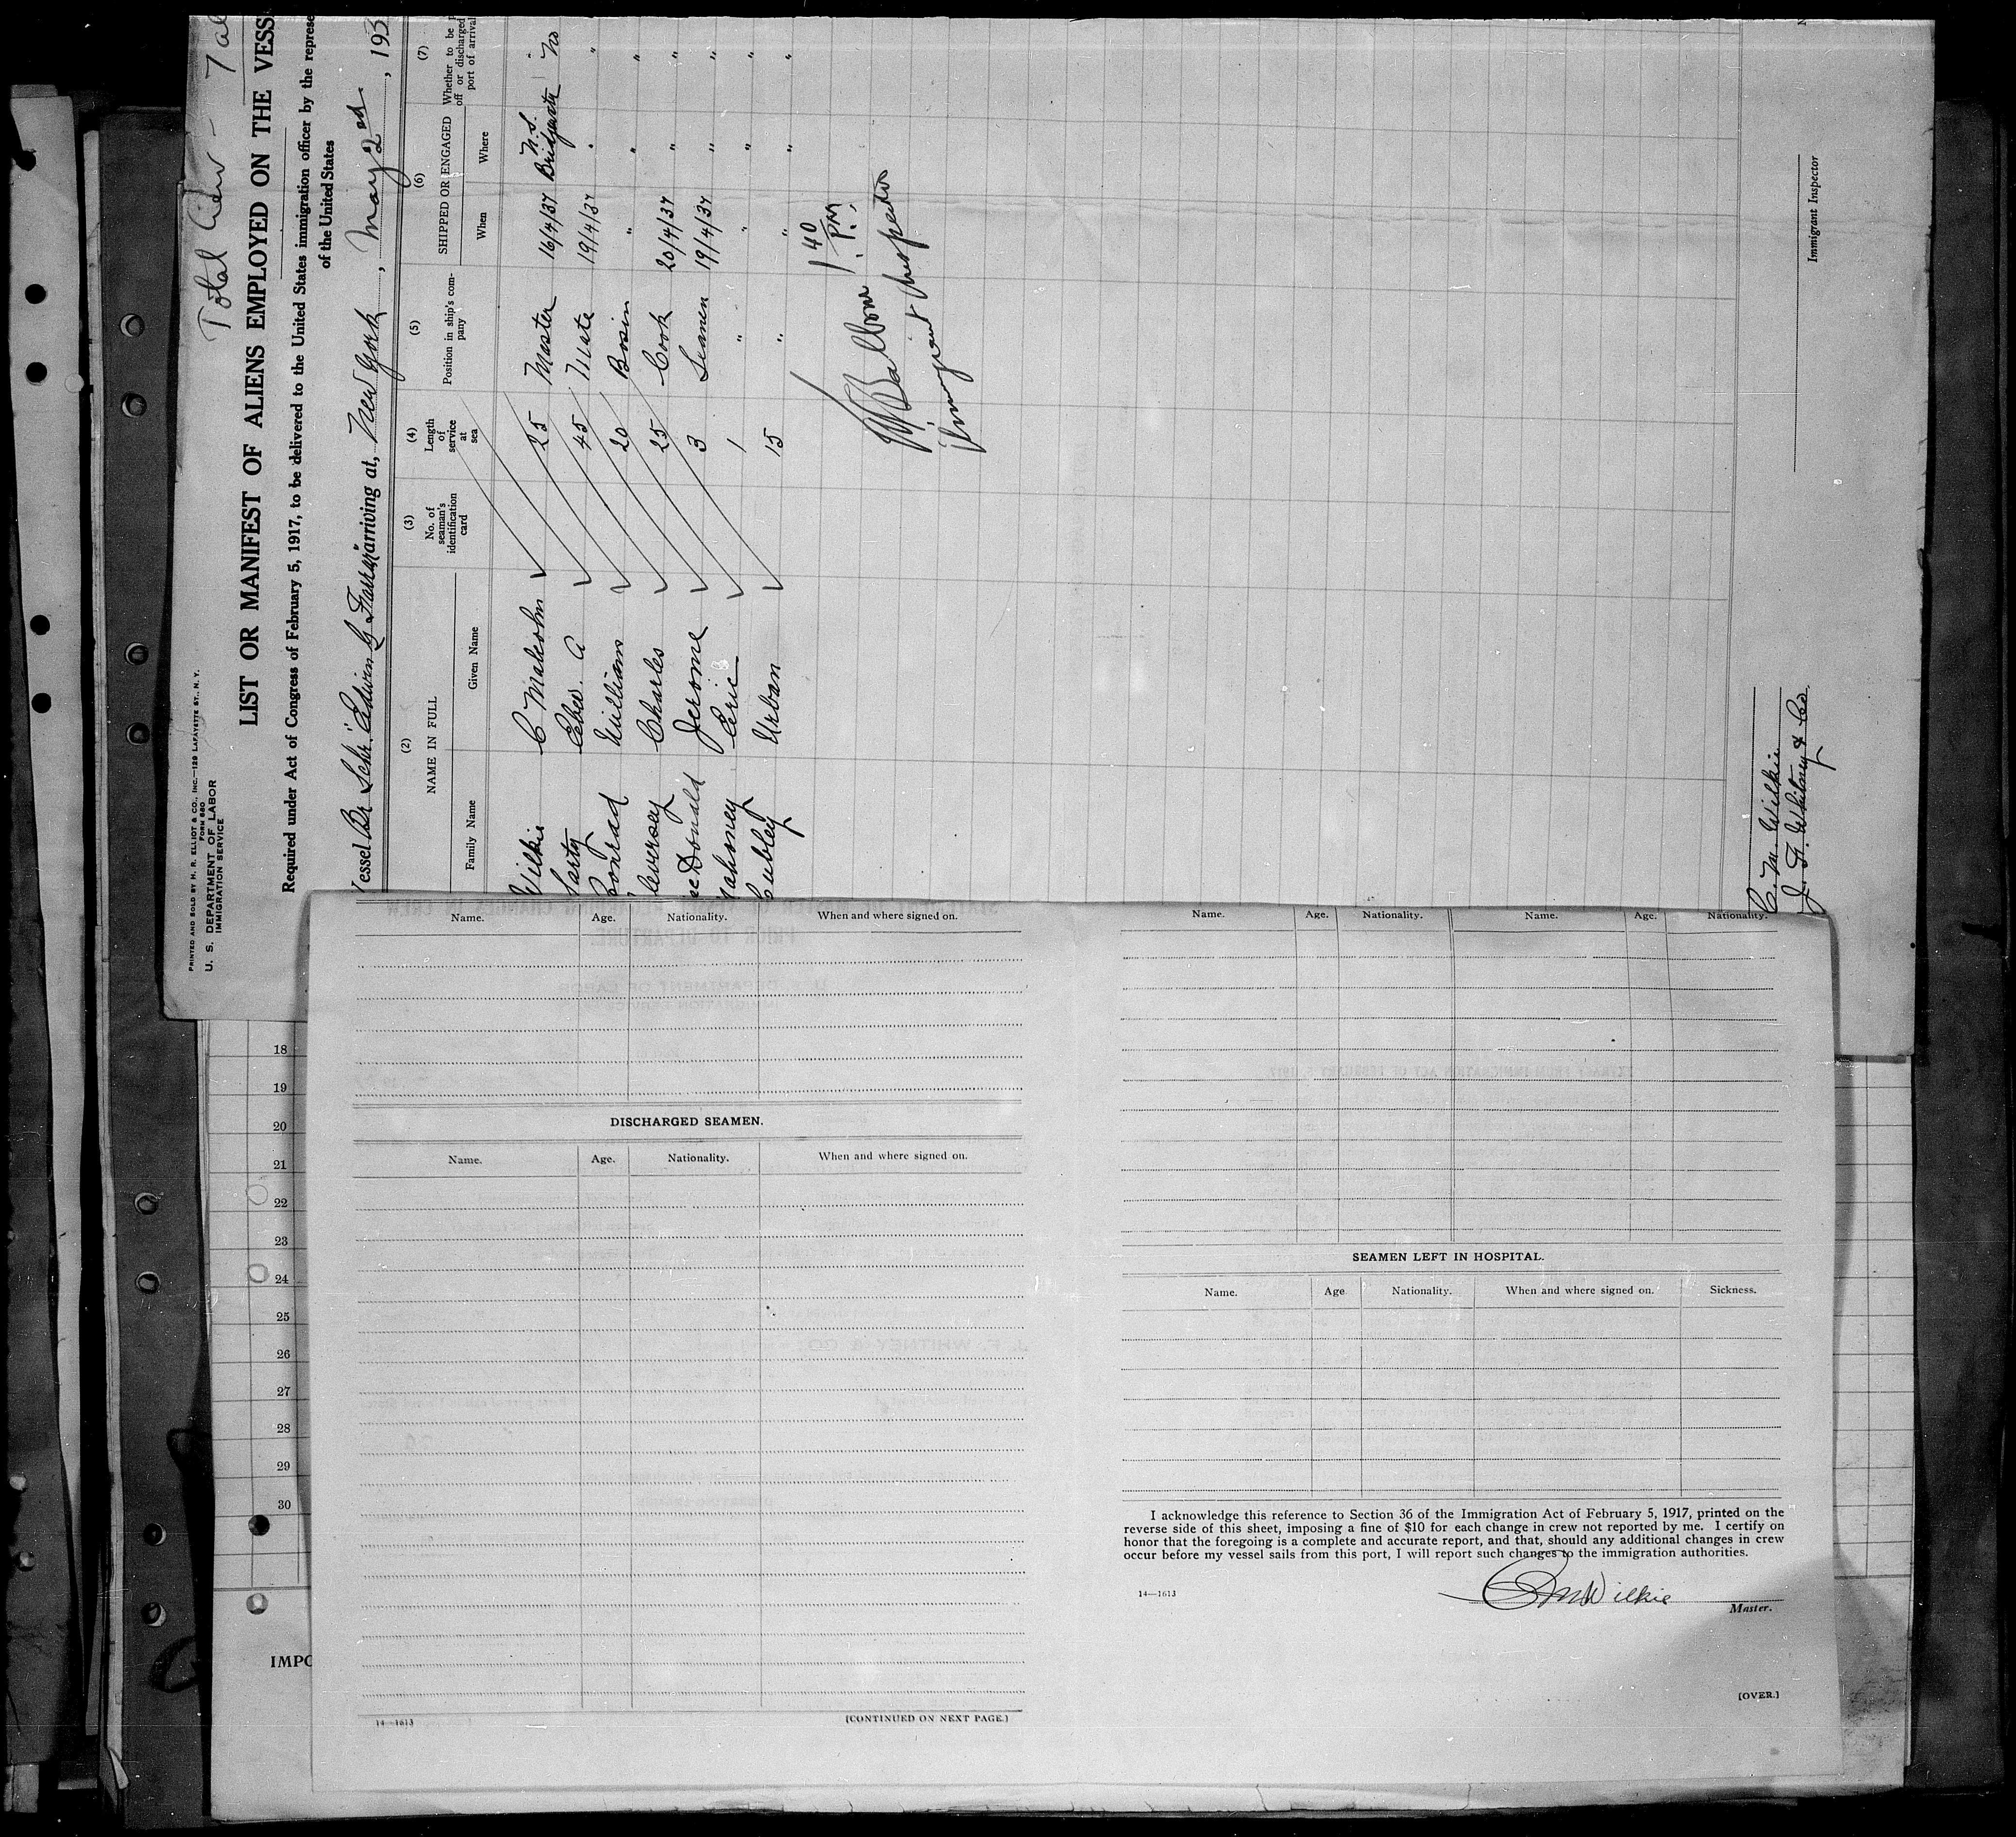 Total Crew - 7 al
PRINTED AND SOLD BY H. R. ELLIOT & CO., INC.—129 LAFAYETTE ST., N. Y.
FORM 680
U. S. DEPARTMENT OF LABOR
IMMIGRATION SERVICE
LIST OR MANIFEST OF ALIENS EMPLOYED ON THE VESS
Required under Act of Congress of February 5, 1917, to be delivered to the United States immigration officer by the represe
of the United States
essel Br Schr. "Edwin G Farrar" arriving at, New York, May 2nd, 193
(2) (3) (4) (5) (6) (7)
NAME IN FULL No. of seaman's identification card Length of service at sea Position in ship's company SHIPPED OR ENGAGED Whether to be off or discharged port of arrival
Family Name Given Name When Where
Wilkie C Malcolm 25 Master 16/4/37 N.S. Bridgewater no
Sarty Eber. A 45 Mate 19/4/37 " "
Conrad William 20 Bosin " " "
leversey Charles 25 Cook 20/4/37 " "
acDonald Jerome 3 Seamen 19/4/37 " "
ahmey Eric 1 " " " "
ubley Urban 15 " " " "
1 40 P.M.
Immigrant Inspector
C. M. Wilkie
J. F. Whitney & Co.
Immigrant Inspector
Name. Age. Nationality. When and where signed on.
DISCHARGED SEAMEN.
Name. Age. Nationality. When and where signed on.
14—1613
[CONTINUED ON NEXT PAGE.]
Name. Age. Nationality. Name. Age. Nationality.
SEAMEN LEFT IN HOSPITAL.
Name. Age Nationality. When and where signed on. Sickness.
I acknowledge this reference to Section 36 of the Immigration Act of February 5, 1917, printed on the
reverse side of this sheet, imposing a fine of $10 for each change in crew not reported by me. I certify on
honor that the foregoing is a complete and accurate report, and that, should any additional changes in crew
occur before my vessel sails from this port, I will report such changes to the immigration authorities.
14—1613
CM Wilkie
Master.
[OVER.]
18
19
20
21
22
23
24
25
26
27
28
29
30
IMPO